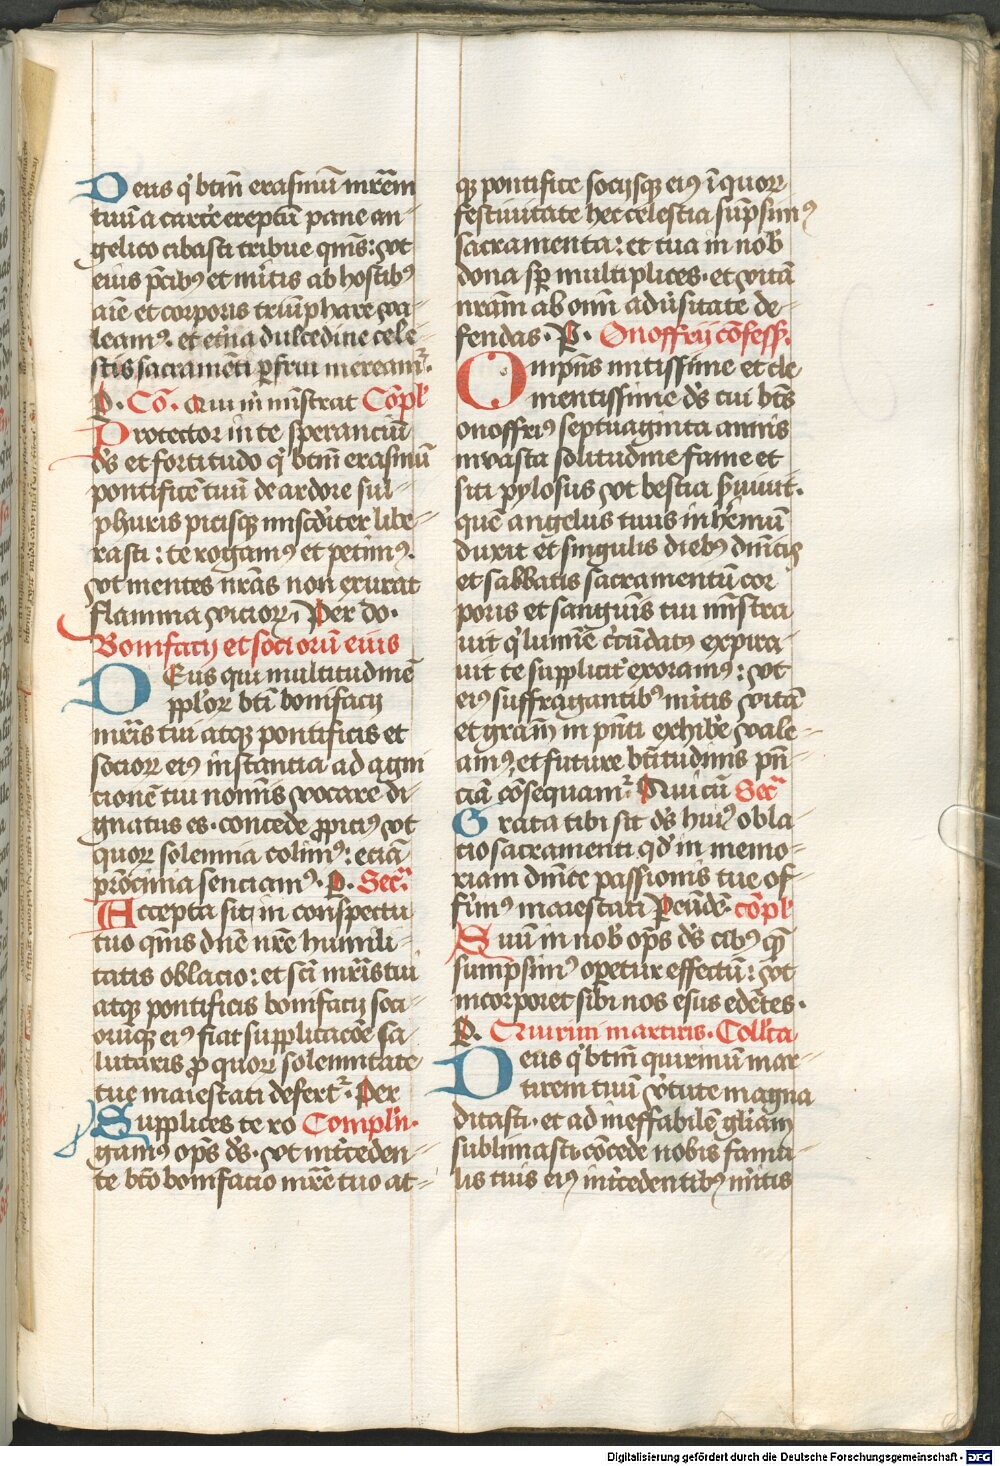 Deus q' btm̄ erasmū mr̄em
tuū a carc̄e ereptū pane an⸗
gelico cibasti tribue qm̄s: vt
eius p̄cibꝰ et mītis ab hostibꝰ
aīe et corporis triūphare va⸗
leamꝰ. et etn̄a dulcedine cele⸗
stis sacramēti ꝑfrui meream᷑
P. Cō. Qui mīnistrat Cōpl'
Protector in te sperancium̄
ds̄ et fortitudo q' btm̄ erasmū
pontificē tuū de ardore sul⸗
phuris picisqꝫ misc̄diter libe⸗
rasti: te rogamꝰ et petimꝰ.
vt mentes nr̄as non exurat
flamma vicioꝝ Per do.
Bonifacij et sociorū eius
DEus qui multitudinē
ppl'oꝝ bti bonifacij
mr̄is tui atqꝫ pontificis et
socioꝝ eiꝰ instantia ad agni
tionē tui nom̄is vocare di⸗
gnatus es. concede ꝓpiciꝰ vt
quoꝝ solemnia colimꝰ: etiā
pr̄ocinia senciamꝰ. P. Secr̄.
Accepta sit in conspectu
tuo qm̄s dn̄e nr̄e humili⸗
tatis oblacio: et sc̄i mr̄is tui
atqꝫ pontificis bonifacij soci⸗
orūqꝫ eiꝰ fiat supplicacōe sa⸗
lutaris ꝓ quoꝝ solemnitate
tue maiestati defert᷑. Per
Supplices te ro Compln̄.
gamꝰ op̄s ds̄. vt int̄ceden⸗
te bt̄o bonifacio mr̄e tuo at⸗
qꝫ pontifice socijsqꝫ eiꝰ ī quoꝝ
festiuitate hec celestia sūpsimꝰ
sacramenta: et tua in nob̄
dona sp̄ multiplices. et vitā
nr̄am ab om̄i aduīsitate de⸗
fendas. P. Onoffrij cōfess̄.
Omnp̄ns mitissime et cle
mentissime ds̄ cui bt̄s
onoffriꝰ septuaginta annis
in vasta solitudine fame et
siti pylosus vt bestia sꝰuiuit.
quē angelus tuus in hēmū
duxit et singulis diebꝰ dn̄icis
et sabbatis sacramentū cor
poris et sangūis tui mīstra
uit q' lumīe c̄cūdatꝰ expira⸗
uit te supplicit̄ exoramꝰ: vt
eiꝰ suffragantibꝰ mītis vitā
et gram̄ in pn̄ti exhib̄e vale⸗
amꝰ, et future bt̄itudinis pn̄⸗
ciā cōsequam᷑ Qui cū Secr̄
Grata tibi sit ds̄ huiꝰ obla⸗
tio sacramenti qd' in memo⸗
riam dn̄ice passionis tue of⸗
ferimꝰ maiestati Peūdē. cōpl'
Suū in nob̄ op̄s ds̄ cibꝰ quē
sumpsimꝰ opetur effectū: vt
incorporet sibi nos esus edētes.
P. Quirini martiris. Coll'ta
Deus q' btm̄ quirinū mar⸗
tirem tuū v̄tute magna
ditasti. et ad ineffabilē gliam̄
sublimasti cōcede nobis famu⸗
lis tuis eiꝰ int̄cedentibꝰ mītis
Digitalisierung gefördert durch die Deutsche Forschungsgemeinschaft - DFG